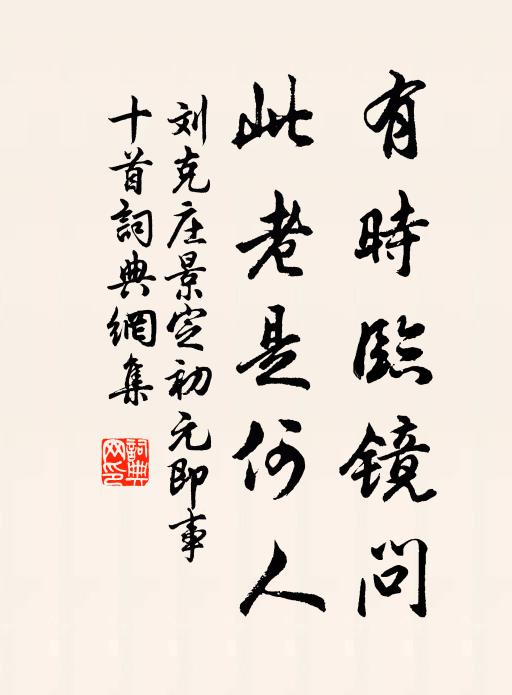 有時臨鏡問
此老是何人
刘克庄景定初元即事
十首詞典網集
詞典網印